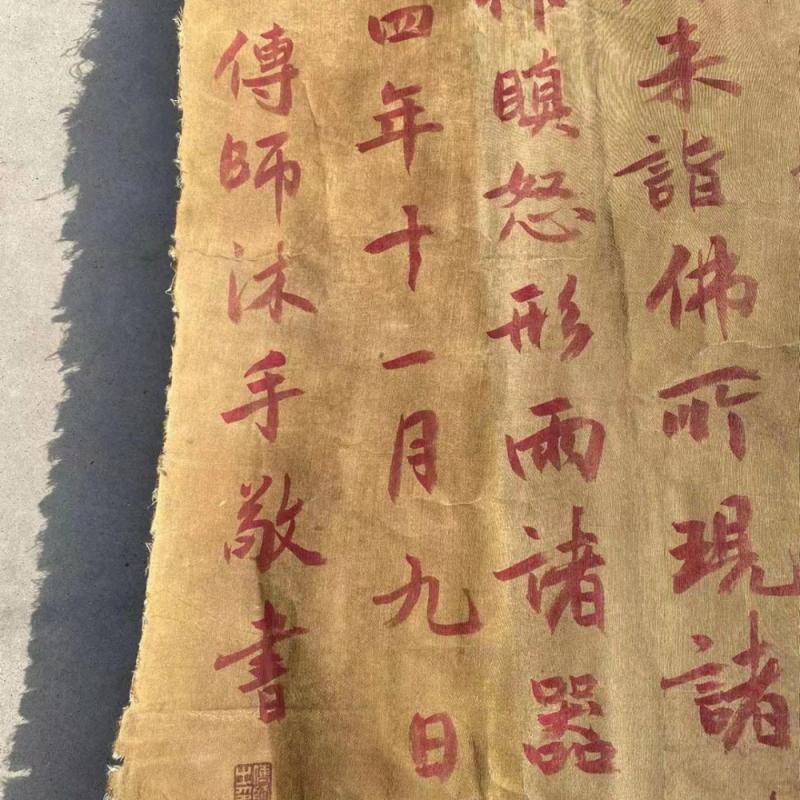 來詣佛所現諸
瞋怒形雨諸器
四年十一月九日
傳師沐手敬書